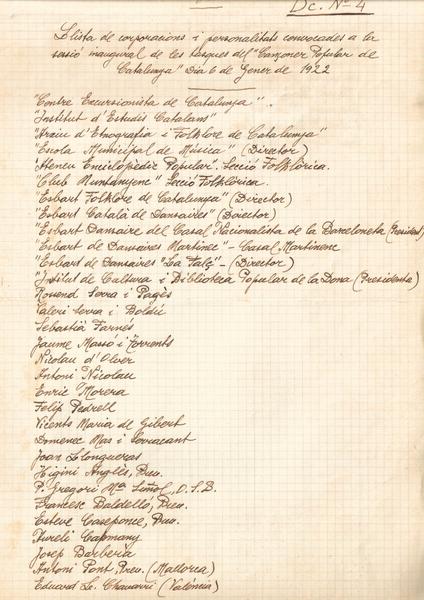 Dc. Nº 4
Llista de corporacions i personalitats convocades a la
sessió inaugural de les tasques del "Cançoner Popular de
Catalunya" Dia 6 de Gener de 1922
"Centre Excursionista de Catalunya".
"Institut d'Estudis Catalans"
"Arxiu d'Etnografia i Folklore de Catalunya"
"Escola Municipal de Música" (Director)
"Ateneu Enciclopèdic Popular". Secció Folklòrica.
"Club Muntanyenc" Secció Folklòrica.
"Esbart Folklore de Catalunya" (Director)
"Esbart Català de Dansaires" (Director)
"Esbart Dansaire del Casal Nacionalista de la Barceloneta (President)
"Esbart de Dansaires Martinec" - Casal Martinenc
"Esbart de Dansaires "La Falç" - (Director)
"Institut de Cultura i Biblioteca Popular de la Dona (Presidenta)
Rossend Serra i Pagès
Valeri Serra i Boldú
Sebastià Farnés
Jaume Massó i Torrents
Nicolau d'Olwer
Antoni Nicolau
Enric Morera
Felip Pedrell
Vicents Maria de Gibert
Domenec Mas i Serracant
Joan Llongueras
Higini Anglès, Prev.
P. Gregori Mª Suñol, O.S.B.
Francesc Baldelló, Prev.
Esteve Caseponce, Prev.
Aureli Capmany
Josep Barberà
Antoni Pont, Prev. (Mallorca)
Eduard L. Chavarri (València)